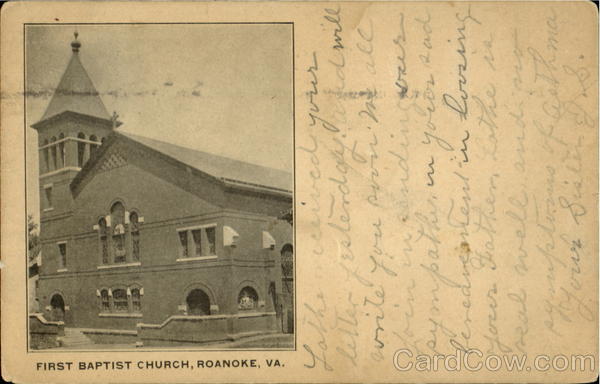 FIRST BAPTIST CHURCH, ROANOKE, VA.
received your
letter yesterday and will
write you soon. We all
join in sending our
sympathy, in your sad
bereavement in loosing
your Father, is
real well, and no
symptoms of asthma
Your Sister
CardCow.com